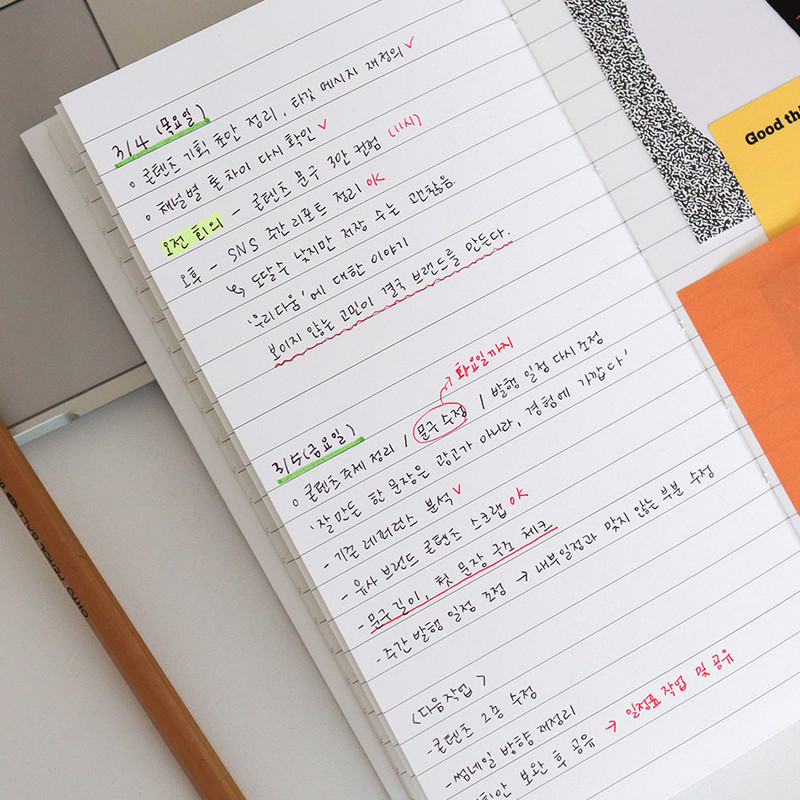 3/4 (목요일)
○ 콘텐츠 기획 초안 정리, 타깃 메시지 재정의 ✓
○ 채널별 톤 차이 다시 확인 ✓
오전 회의 - 콘텐츠 문구 3안 컨펌 (11시)
오후 - SNS 주간리포트 정리 OK
↳ 도달수 낮지만 저장 수는 괜찮음
'우리다움'에 대한 이야기
보이지 않는 고민이 결국 브랜드를 만든다.
화요일까지
3/5(금요일)
○ 콘텐츠주제 정리 / 문구 수정 / 발행 일정 다시 조정
'잘 만든 한 문장은 광고가 아니라, 경험에 가깝다'
- 기존 레퍼런스 분석 ✓
- 유사 브랜드 콘텐츠 스크랩 OK
- 문구길이, 첫 문장 구조 체크
- 주간 발행 일정 조정 → 내부일정과 맞지 않는 부분 수정
<다음작업>
- 콘텐츠 2종 수정
- 썸네일 방향 재정리
보완 후 공유 → 일정표 작업 및 공유
Good thi
OHTO PENCIL BALL